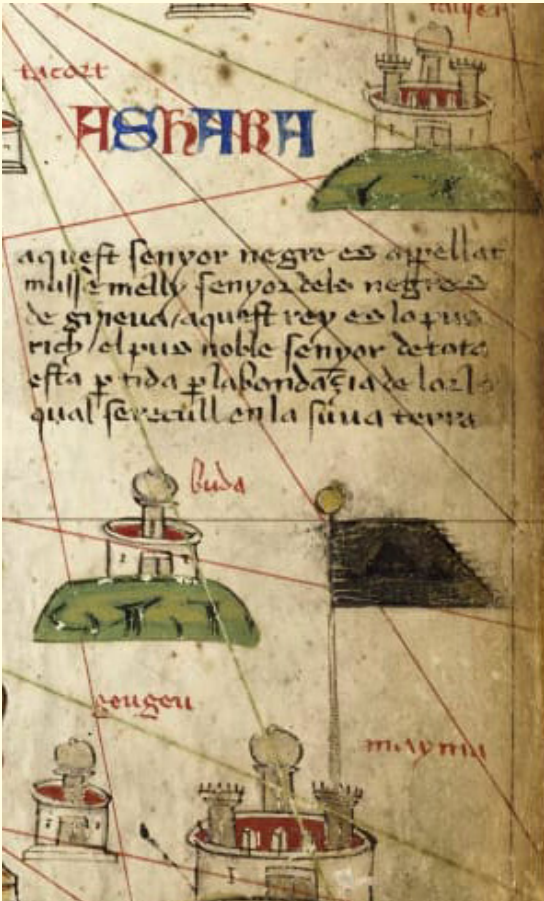 tacort
ASHARA
aquest senyor negre es appellat
musse melly senyor dels negres
de gineua / aquest rey es lo pus
rich / el pus noble senyor de tota
esta p tida p labondaçia de lor lo
qual se recull en la sua terra
buda
geugeu
mayma